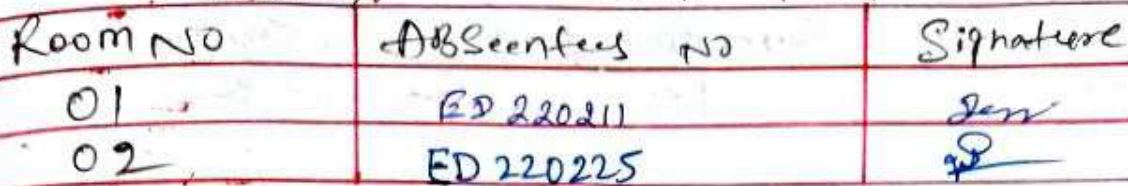 Room NO ABSeentees NO Signature
01 ED 220211
02 ED 220225